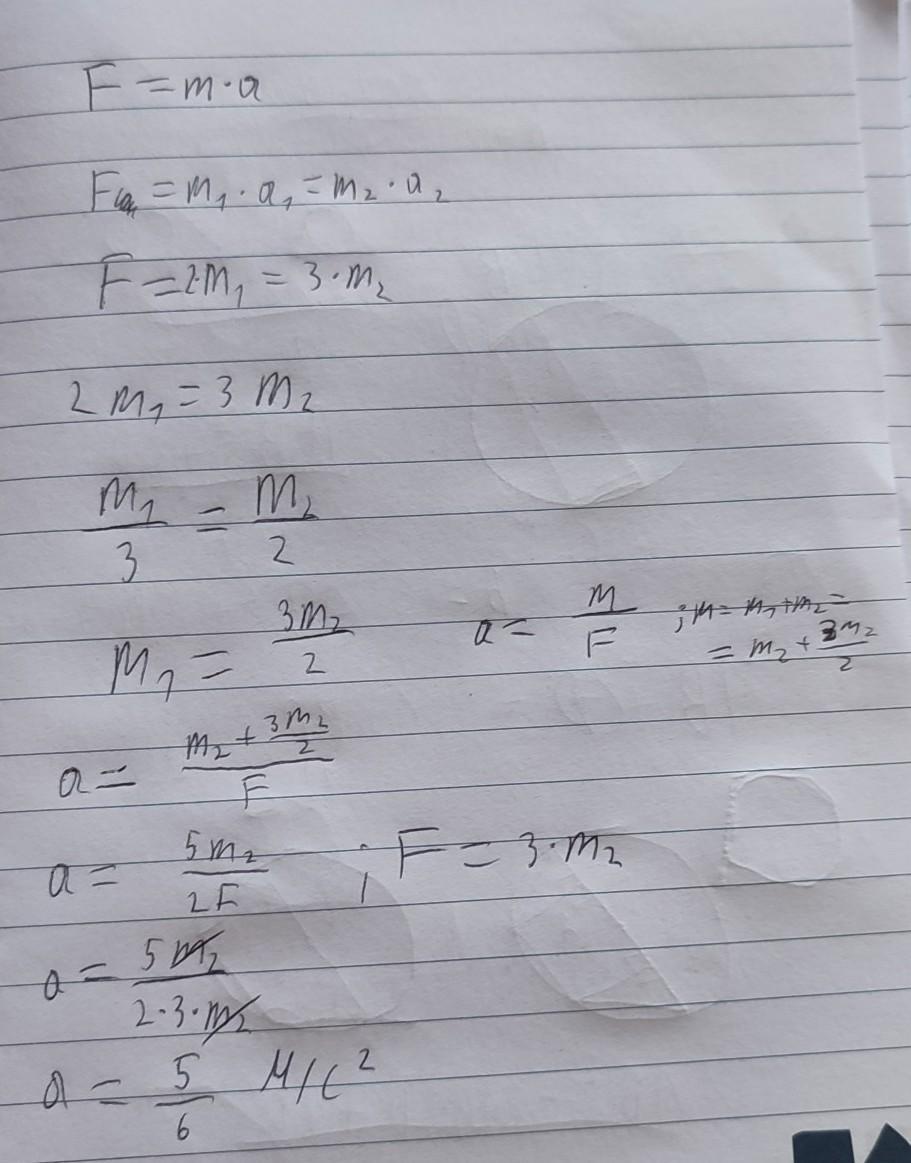 F = m · a
F = m₁ · a₁ = m₂ · a₂
F = 2·m₁ = 3 · m₂
2 m₁ = 3 m₂
m₁/3 = m₂/2
m₁ = 3m₂/2
a = m/F ; m = m₁ + m₂ =
= m₂ + 3m₂/2
a = (m₂ + 3m₂/2)/F
a = 5m₂/2F ; F = 3·m₂
a = 5m₂/2·3·m₂
a = 5/6 м/с²